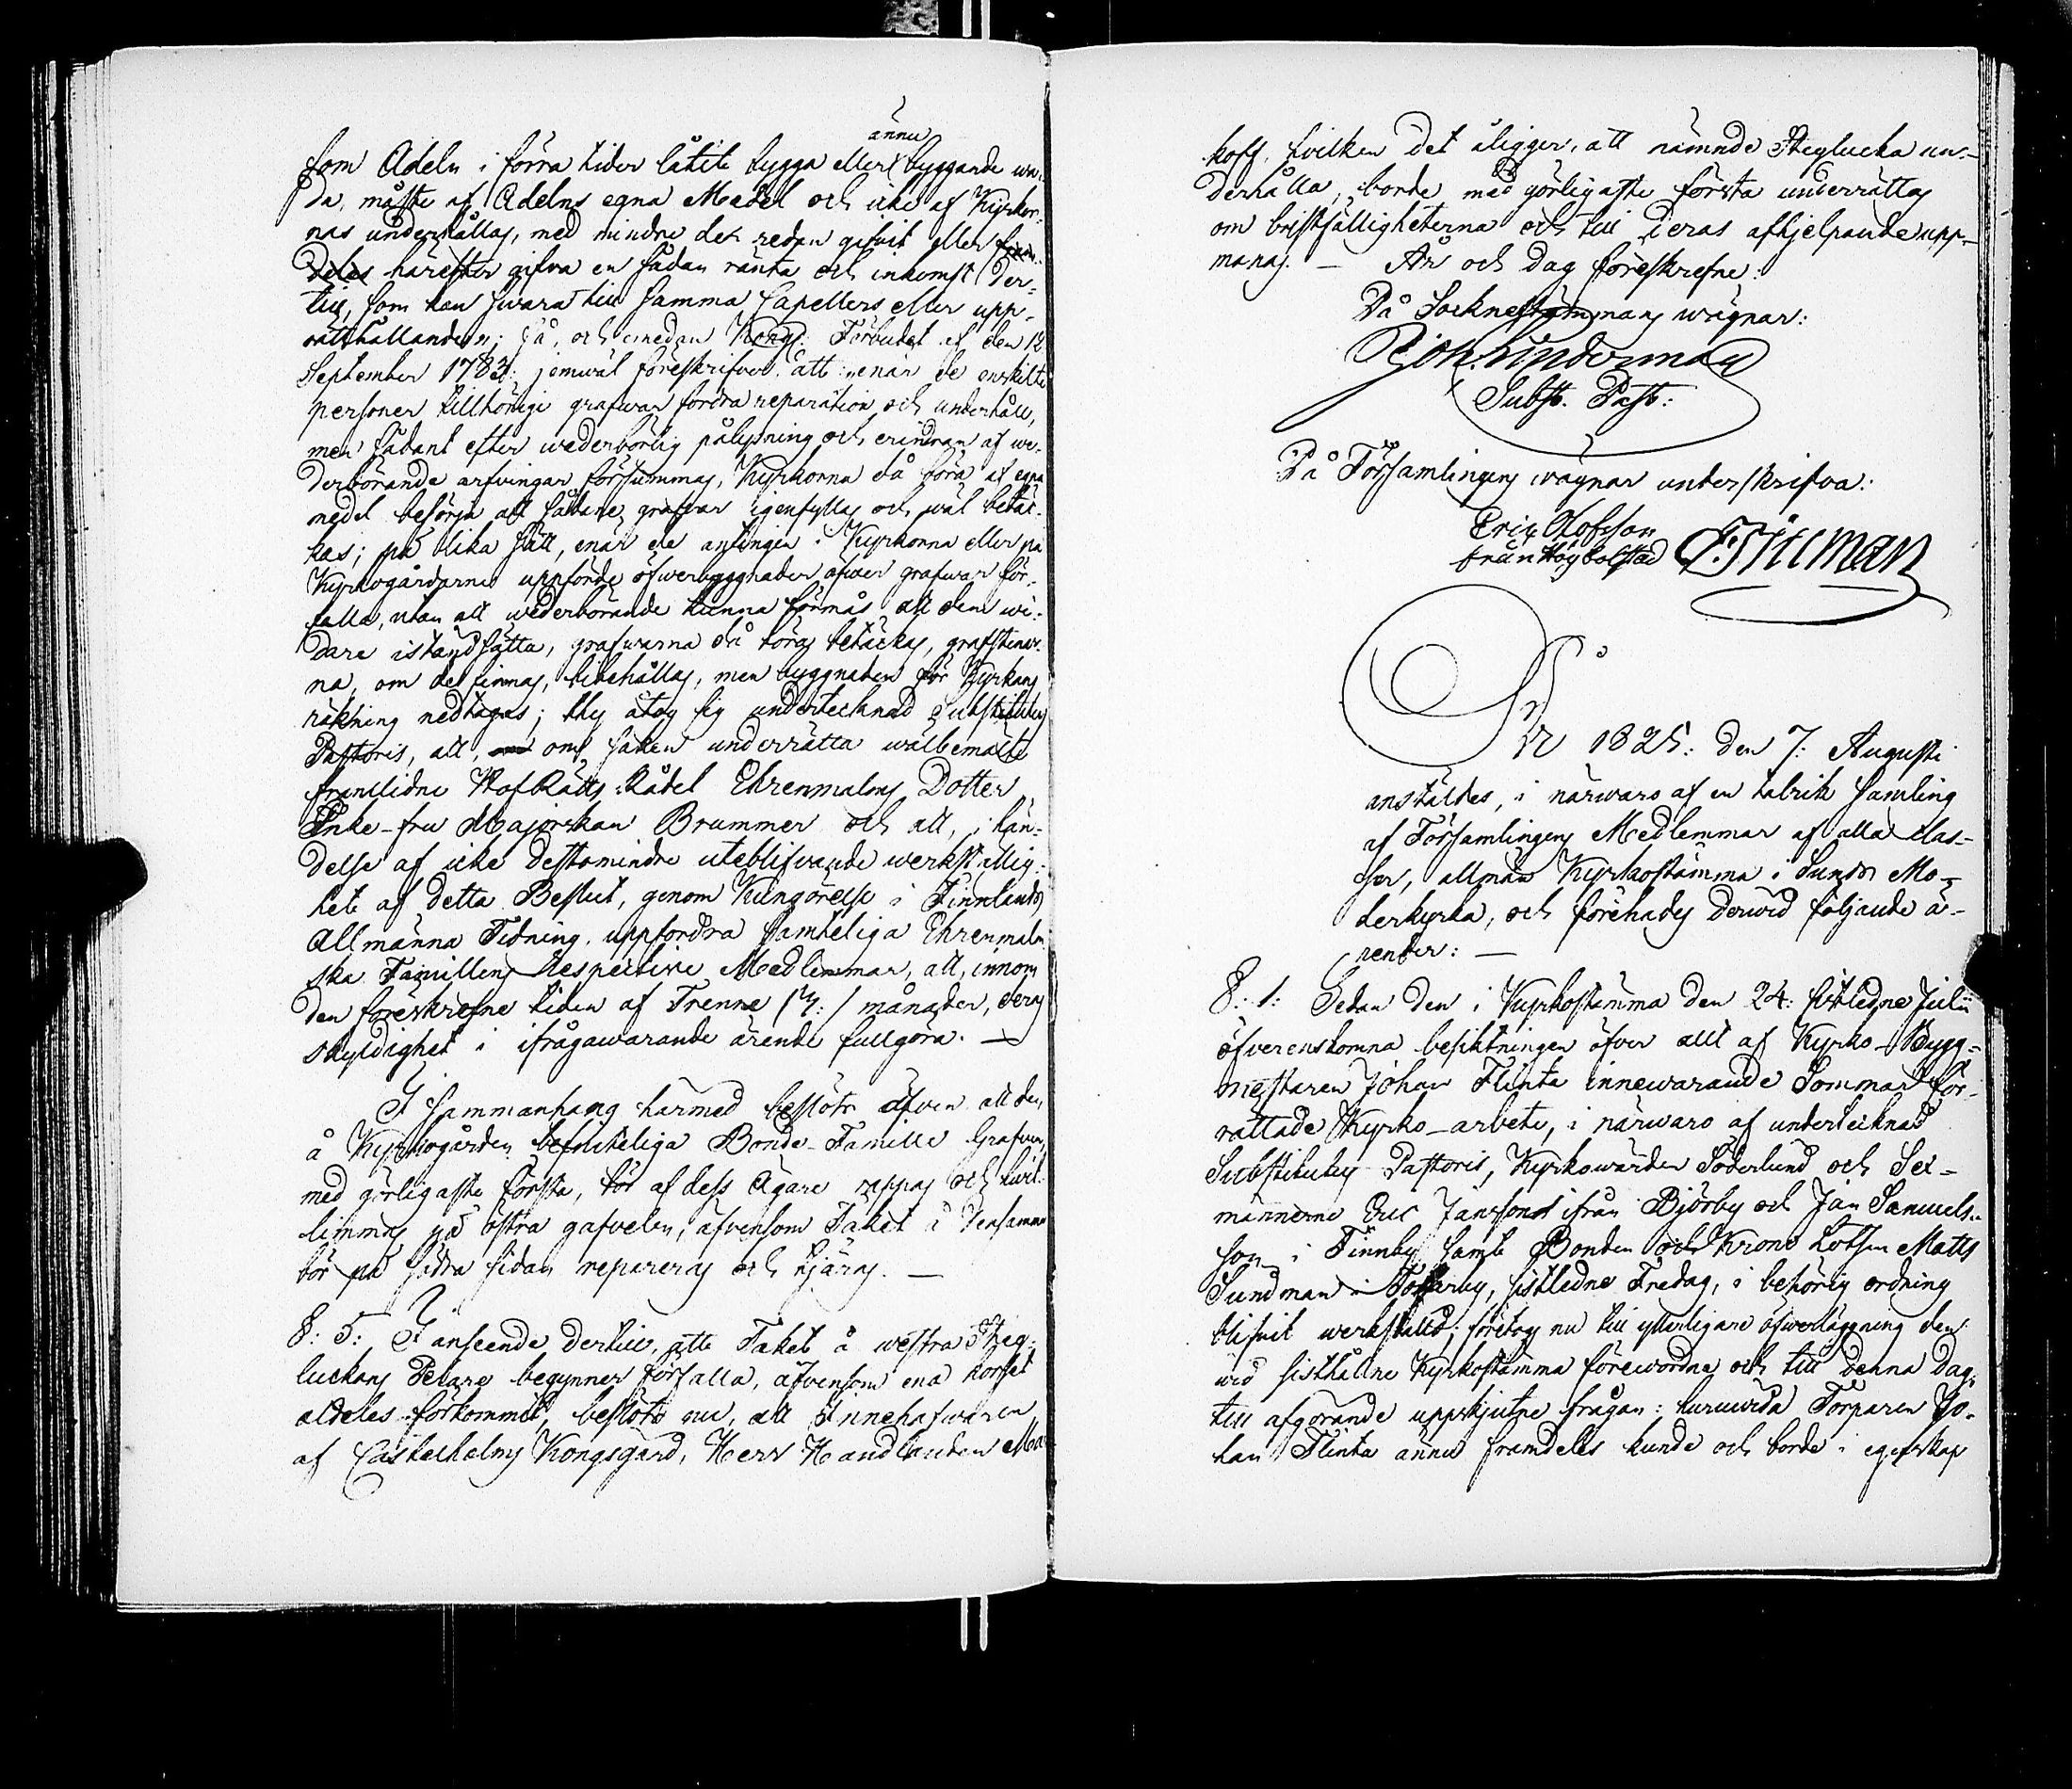 som Adeln i förra tider låtit bygga eller ännu byggande wa-
da, måste af Adelns egna Medel och icke af Kyrkor-
nas underhållas, med mindre de redan gifvit eller fram-
deles härefter gifva en sådan ränta och inkomst der-
till, som kan swara till samma Capellers eller upp-
rätthållanden; så, och emedan Kongl. Förbudet af den 12
September 1783: jemwäl föreskrifver: att "enär de enskilte
personer tillhörige grafwar fordra reparation och underhåll,
men sådant efter wederbörlig pålysning och erindran af we-
derbörande arfvingar försummas, Kyrkorna då böra af egna
medel besörja att sådane grafvar igenfyllas och wäl betäc-
kas; på lika sätt, enär de antingen i Kyrkorna eller på
Kyrkogårdarne uppförde öfwerbyggnader öfwer grafwar för-
falla, utan att wederbörande kunna förmås att dem wi-
dare iståndsätta, grafwarna då böra betäckas, grafstenar-
na, om de finnas, bibehållas, men byggnaden för Kyrkans
räkning nedtagas; thy åtog sig undertecknad Substitutus
Pastoris, att, om saken underrätta wälbemälte
framlidne HofRätts-Rådet Ehrenmalms Dotter
Enke-fru Majorskan Brummer och att, i hän-
delse af icke desstomindre uteblifvande werkställig-
het af detta Beslut, genom Kungörelse i Finnlands
Allmänna Tidning, uppfordra samteliga Ehrenmalm-
ska Famillens Respective Medlemmar, att, innom
den föreskrefne tiden af Trenne /3:/ månader, deras
skyldighet i ifrågawarande ärende fullgöra. —
I sammanhang härmed beslöts äfven att den
å Kyrkogården befinteliga Bonde-Famille Grafven,
med görligaste första, bör af dess Ägare rappas och hwit-
limmas på östra gafvelen, äfvensom Taket å densamma
bör på södra sidan repareras och tjäras. —
§: 5: I anseende dertill, att Taket å westra Stig-
luckans Pelare begynner förfalla, äfvensom ena korset
aldeles förkommit, beslöts nu, att Innehafwaren
af Castelholms Kongsgård, Herr Handlanden Ma-
koff, hvilken det åligger, att nämnde Stiglucka un-
derhålla, borde med görligaste första underrättas
om bristfälligheterna och till deras afhjelpande upp-
manas. — År och dag föreskrefne:
På Socknestämmans wägnar:
Joh. Sunderman
Subst. Past:
På Församlingens wägnar underskrifva:
Eric Olofsson
från Högbolstad F: Tiliman
År 1825: den 7: Augusti
anställdes, i närwaro af en talrik samling
af Församlingens Medlemmar af alla clas-
ser, allmän Kyrkostämma i Sunds Mo-
derkyrka, och förehades derwid följande ä-
render: —
§: 1: Sedan den i Kyrkostämma den 24: sistledne Julii
öfverenskomna besiktningen öfver allt af Kyrko-Bygg-
mästaren Johan Flinta innewarande Sommar för-
rättade Kyrko-arbete, i närwaro af undertecknad
Substitutus Pastoris, Kyrkowärden Söderlund och Sex-
männerne Eric Jansson ifrån Björby och Jan Samuels-
son i Finnby samt Bonden och Krono Lotsen Matts
Sundman i Tosarby, sistledne Fredag, i behörig ordning
blifvit werkställd; företogs nu till ytterligare öfverläggning den
wid sisthållne Kyrkostämma förewordne och till denna dag,
till afgörande uppskjutne frågan: huruwida Torparen Jo-
han Flinta ännu framdeles kunde och borde i egenskap